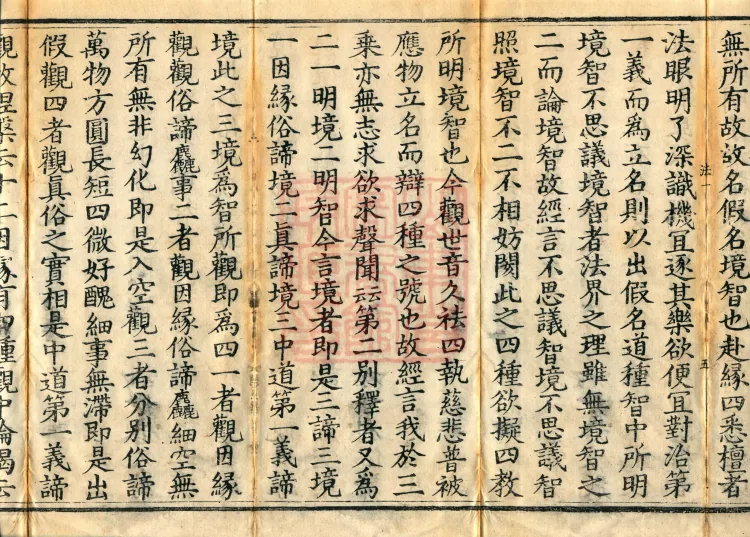 無所有故故名假名境智也赴緣四悉檀者
法眼明了深識機冝逐其樂欲便冝對治第
法一　五
一義而爲立名則以出假名道種智中所明
境智不思議境智者法界之理雖無境智之
二而論境智故經言不思議智境不思議智
照境智不二不相妨閡此之四種欲擬四教
所明境智也今觀世音久祛四執慈悲普被
應物立名而辯四種之號也故經言我於三
乗亦無志求欲求聲聞云云第二別釋者又爲
二一明境二明智今言境者即是三諦三境
一因緣俗諦境二眞諦境三中道第一義諦
境此之三境爲智所觀即爲四一者觀因緣
觀觀俗諦麤事二者觀因緣俗諦麤細空無
所有無非幻化即是入空觀三者分別俗諦
萬物方圓長短四微好醜細事無滯即是出
假觀四者觀真俗之實相是中道第一義諦
觀故涅槃云十二因緣有四種觀中論偈云